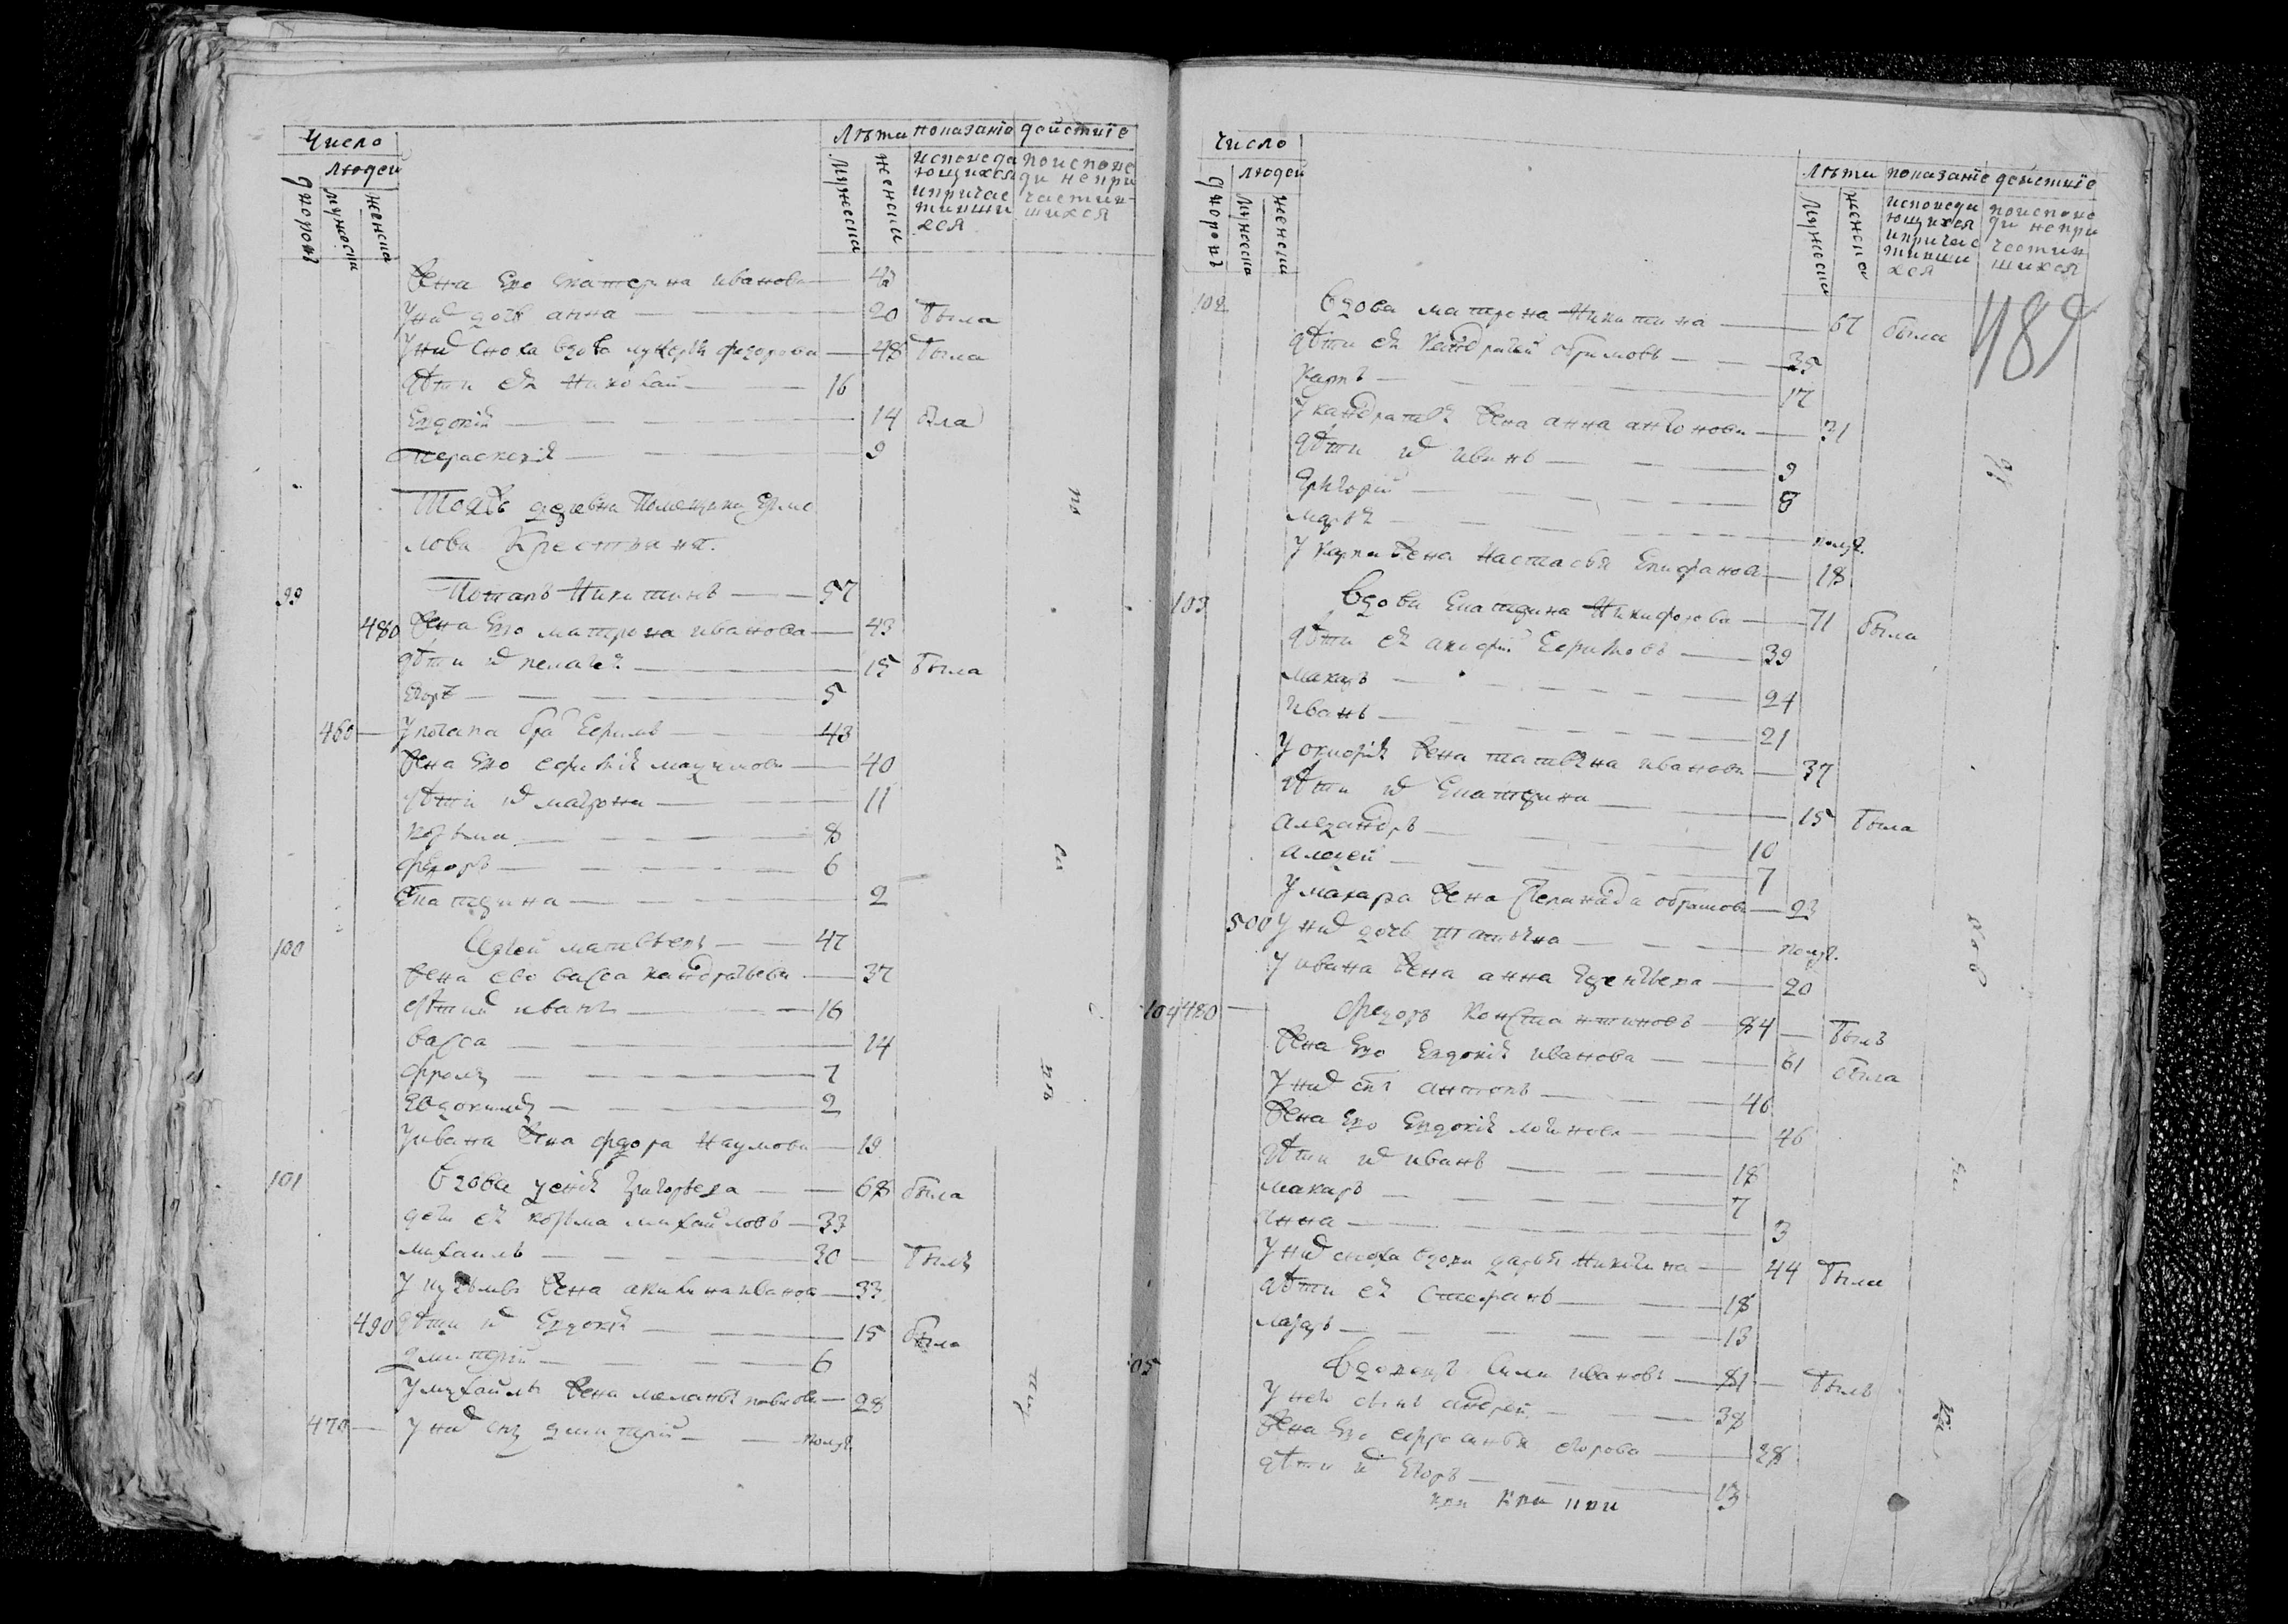 Число
людей
дворовъ
мужеска
женска
Лѣта
показанїе действїе
мужеска
женска
исповеда
ющихся
ипричас
тивши
хся
поиспове
ди непри
частив-
шихся
Жена Ево Екатерина иванова — 43
Унихъ дочь анна — 20 была
Унихъ Сноха вдова лукерья федорова — 48 была
дѣти ея Николай — 16
Евдокия — 14 была
параскевия — 9
Тояжъ деревни Помещика Ермо
лова Крестьяня.
99 Потапъ Никитинъ — 57
480 Жена Ево матрона иванова — 43
дѣти их пелагея — 15 была
Егоръ — 5
460 — У потапа братъ Ефимъ — 43
Жена Ево ефимия максимова — 40
дѣти их матрона — 11
козьма — 8
федоръ — 6
Екатерина — 2
100 Сергей матвеевъ — 47
Жена ево васса кандратьева — 37
дѣти их иванъ — 16
васса — 14
фролъ — 7
Евдокимъ — 2
У ивана жена федора Наумова — 19
101 Вдова ксения григорьева — 68 была
дети ея козьма михайловъ — 33
михаилъ — 30 — былъ
У кузьмы жена акилина иванова — 33
490 дѣти их Евдокия — 15 была
дмитрий — 6
У михайлы жена меланья — 28
470 — У них сынъ дмитрий — полгода
Число
людей
дворовъ
мужеска
женска
Лѣта показанїе действїе
мужеска
женска
исповеда
ющихся
ипричас
тивши
хся
поиспове
ди непри
частив
шихся
489
102 Вдова матрона Никитина — 67 была
дѣти ея Кандратей — 35
Карпъ — 17
У кандратья жена анна антонова — 31
дѣти их иванъ — 9
Григорий — 8
марья — полгода
У Карпа жена Настасья Епифанова — 18
103 Вдова Екатерина Никифорова — 71 была
дѣти ея Ефимовъ — 39
макаръ — 24
иванъ — 21
жена татьяна иванова — 37
дѣти их Екатерина — 15 была
александръ — 10
алексей — 7
У макара жена — 23
500 У них дочь татьяна — полгода
У ивана жена анна — 20
104 480 — Федоръ Константиновъ — 84 — былъ
Жена Ево Евдокия иванова — 61 была
У них сынъ антонъ — 46
Жена Ево Евдокия — 46
дѣти их иванъ — 18
макаръ — 7
анна — 3
У них сноха вдова дарья Никитина — 44 была
дѣти ея Стефанъ — 18
лазарь — 13
105 Вдовецъ иванов — 81 — былъ
У него сынъ андрей — 38
Жена Ево ефросинья егорова — 38
дѣти их Егоръ — 13